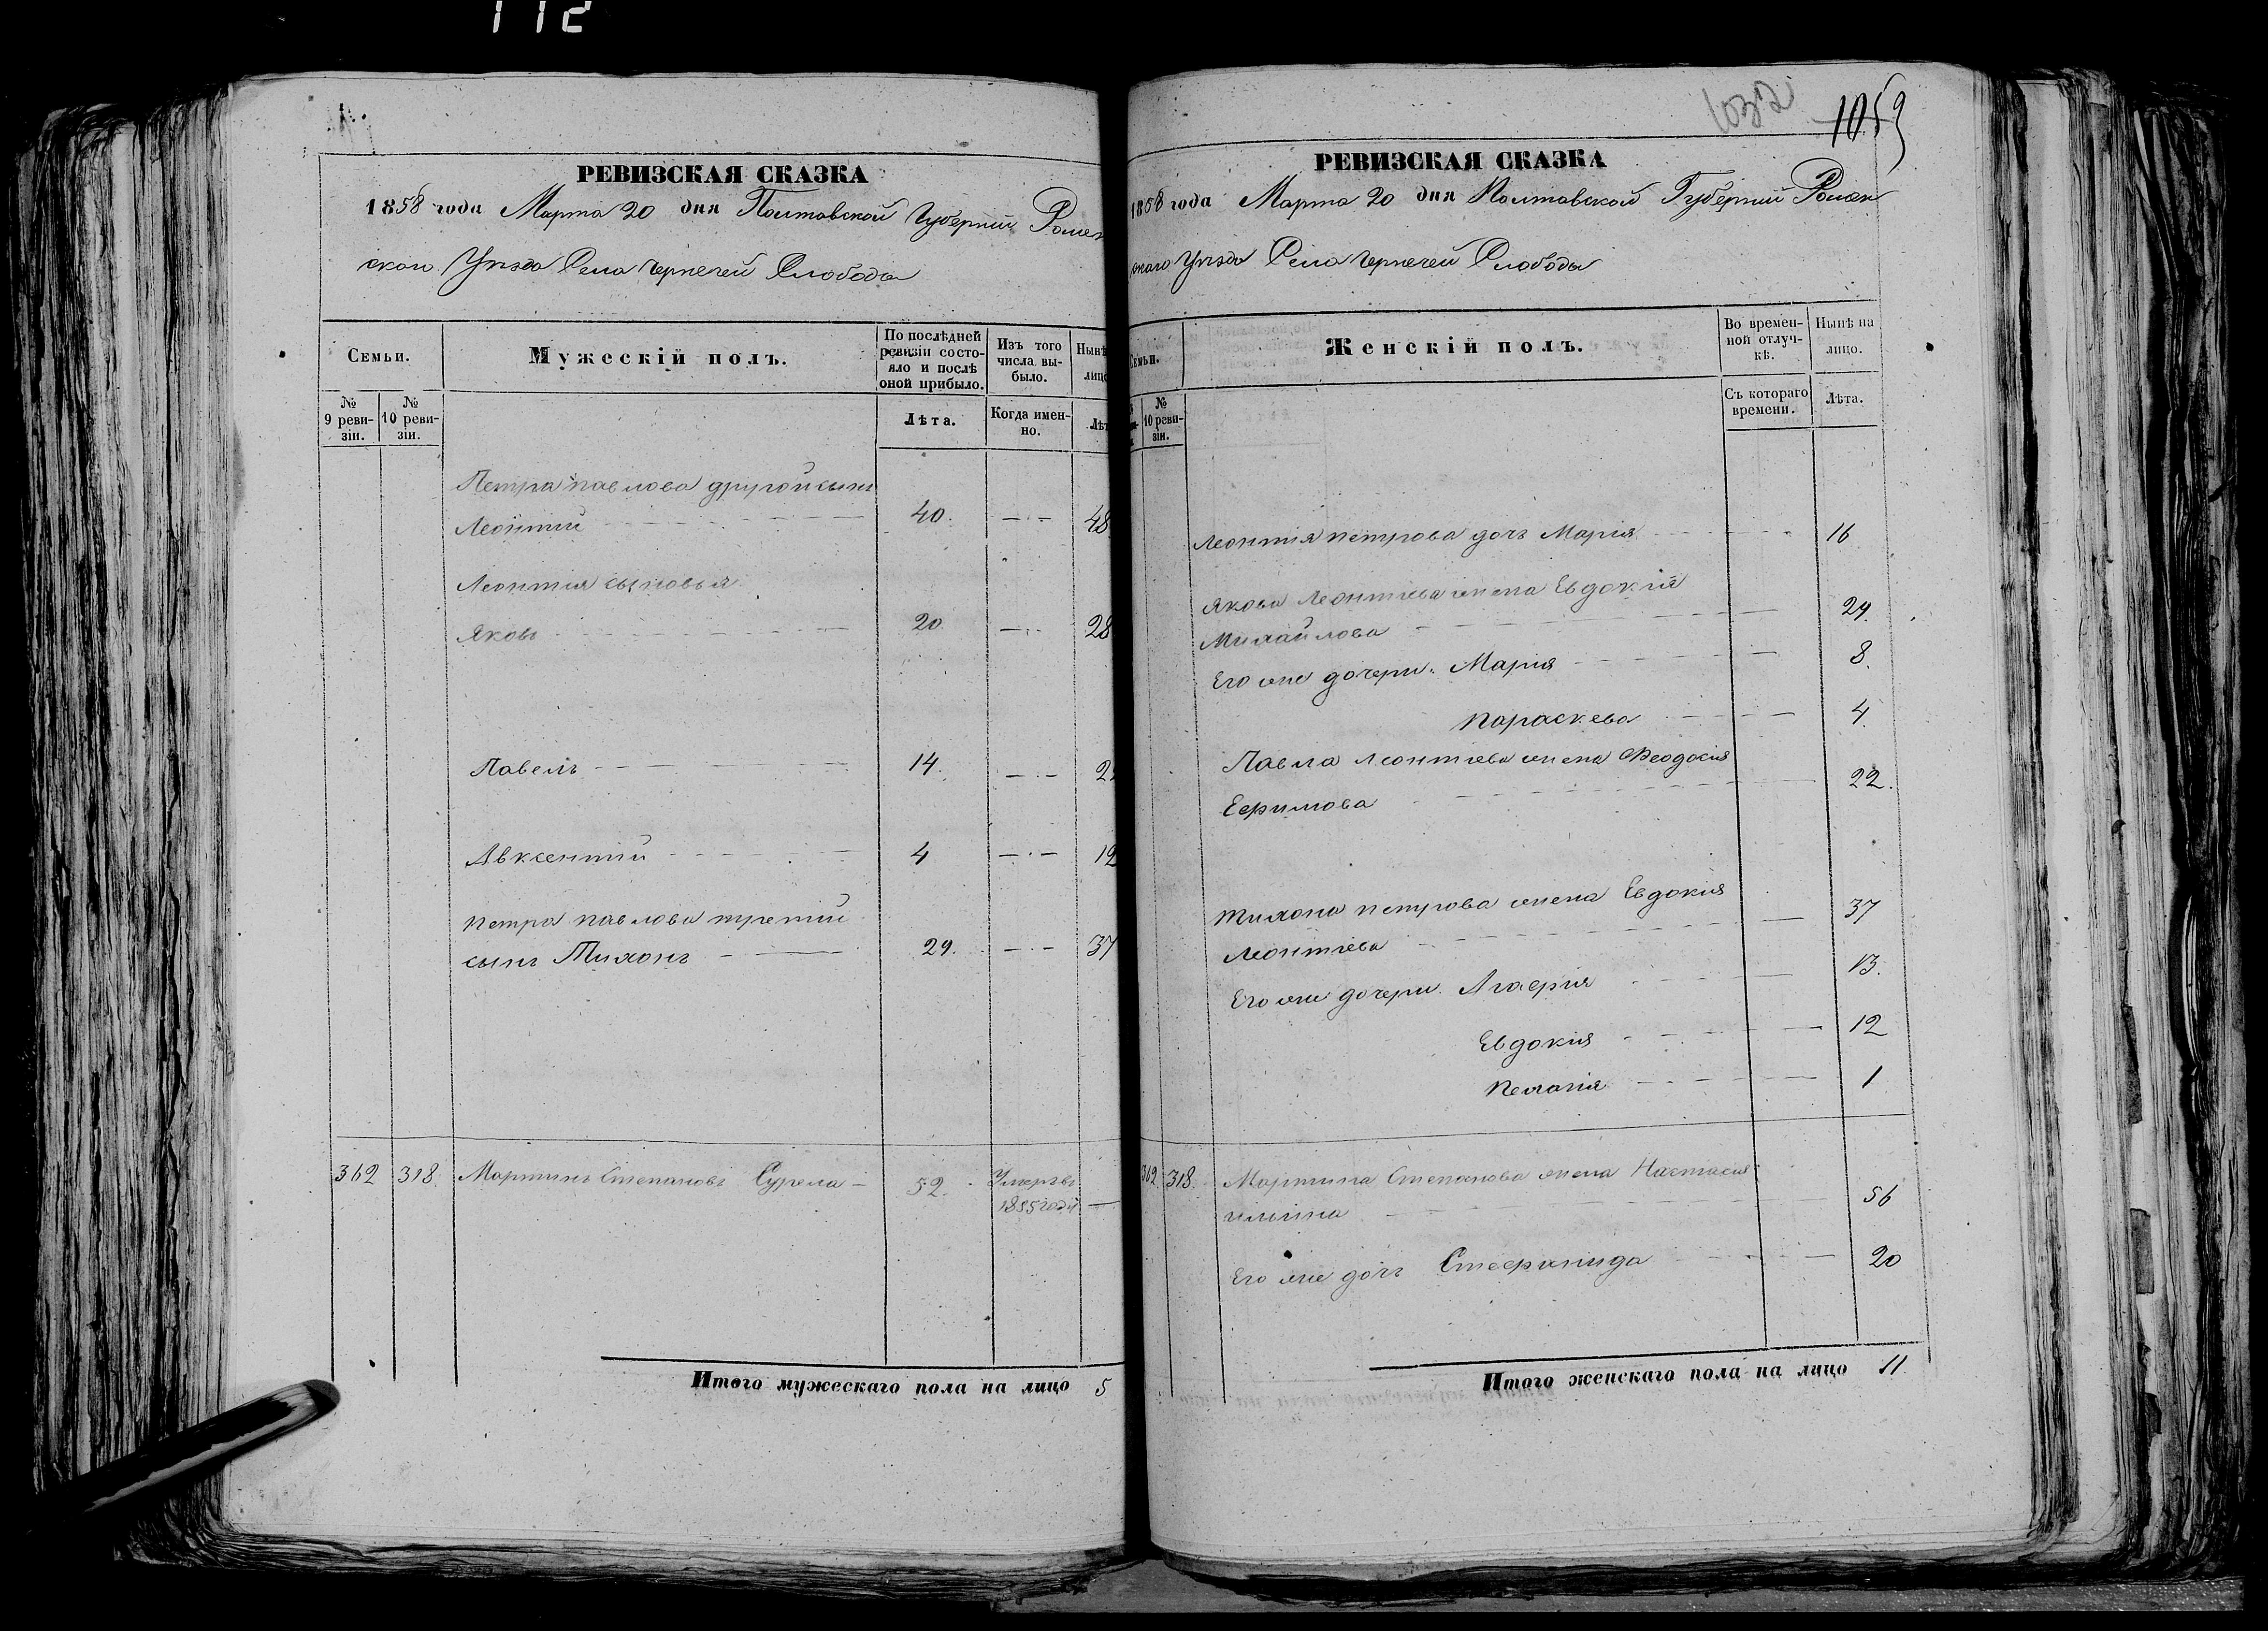 112
РЕВИЗСКАЯ СКАЗКА
1858 года Марта 20 дня Полтавской Губерніи Ромен
скаго Уѣзда Села Чернечей Слободы
Семьи.
Мужескій полъ.
По послѣдней ревизіи состояло и послѣ оной прибыло.
Изъ того числа вы-было.
Нынѣ
лицо
№ 9 реви-зіи.
№ 10 реви-зіи.
Лѣта.
Когда имен-но.
Лѣт
Петра Павлова другой сынъ
Леонтий 40. 48
Леонтия сыновья
Яковъ 20 28
Павелъ 14. 2
Авксентий 4 12
Петра Павлова третий
сынъ Тихонъ 29. 37
362 318. Мартинъ Степановъ Сурела 52. Умеръ въ
1855 годѣ
Итого мужескаго пола на лицо 5
1032 1059
РЕВИЗСКАЯ СКАЗКА
1858 года Марта 20 дня Полтавской Губерніи Ромен
скаго Уѣзда Села Чернечей Слободы
Семьи.
Женскій полъ.
Во времен-ной отлуч-кѣ.
Нынѣ на лицо.
№ 10 реви-зіи.
Съ котораго времени.
Лѣта.
Леонтия Петрова дочь Мария 16
Якова Леонтіева жена Евдокия
Михайлова 29.
Его же дочери: Мария 8.
Параскева 4.
Павла Леонтіева жена Феодосия
Ефимова 22.
Тихона Петрова жена Евдокия
Леонтіева 37
Его же дочери. Агафия 13.
Евдокия 12
Пелагія 1
362. 318. Мартина Степанова жена Настасия
Ильина 56
Его же дочь Стефанида 20
Итого женскаго пола на лицо 11